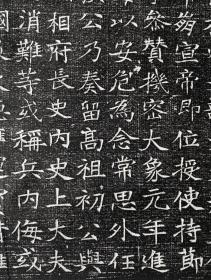 宣帝即位授使持節
叅贊機密大象元年進
以安危為念常思外任
公乃奏留高祖初公與
相府長史內史上大夫
消難等或稱兵內侮或